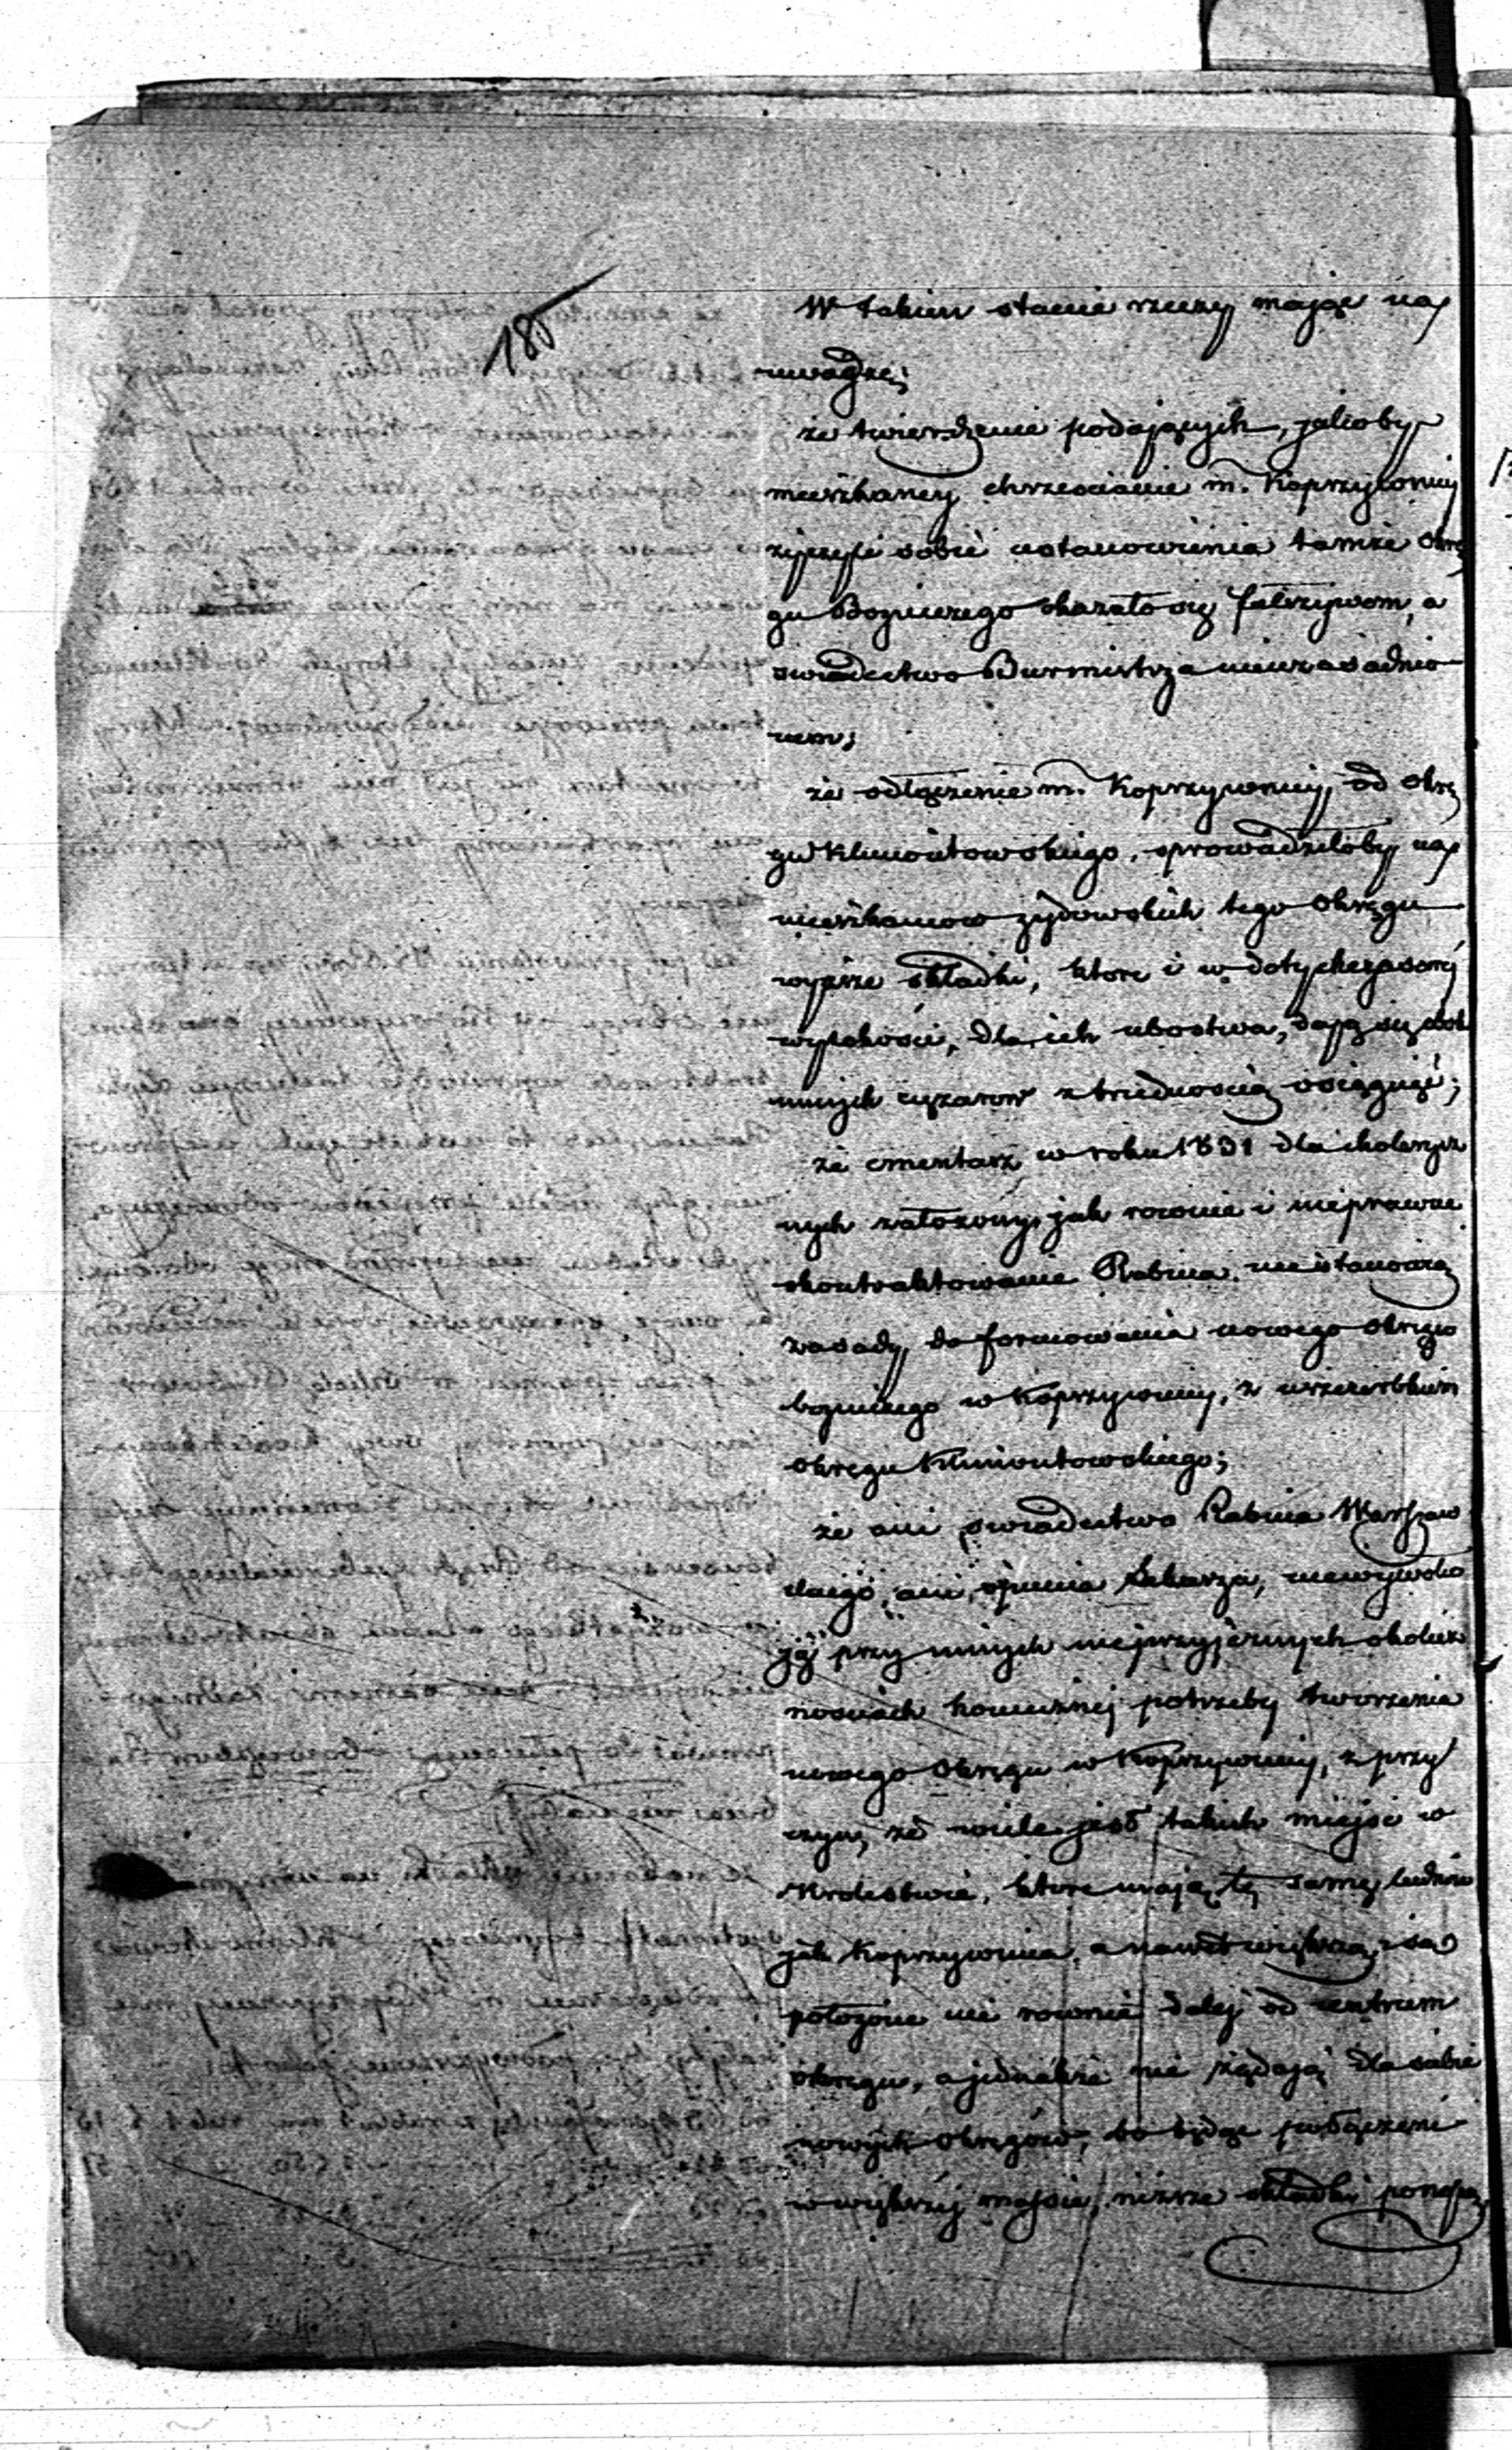 185
W takim stanie rzeczy mając na
uwadze;
że twierdzenie podających, jakoby
mieszkancy chrzescianie m. Koprzywnicy
życzyli sobie ustanowienia tamże Okrę
gu Bożniczego okazało się fałszywem, a
swiadectwo Burmistrza nieuzasadnio
nem;
że odłączenie m. Koprzywnicy, od okrę
gu Klimontowskiego, sprowadziłoby na
mieszkancow żydowskich tego Okręgu
wyższe składki, ktore i w dotychczasowej
wysokości, dla ich ubostwa, dają się obok
innych ciężarow z trudnością osiągnąć;
że cmentarz w roku 1831 dla cholerycz
nych założony, jak rownie i nieprawne
skontraktowanie Rabina nie stanowią
zasady do formowania nowego okręgu
bożniczego w Koprzywnicy, z uszczerbkiem
okręgu Klimontowskiego;
że ani swiadectwo Rabina Warszaw
skiego, ani opinia Lekarza, niewywołu
ją przy innych nieprzyjaznych okolicz
nosciach koniecznej potrzeby tworzenia
nowego Okręgu w Koprzywnicy, z przy
czyny, że wiele jest takich miejsc w
Krolestwie, ktore mają tę samę ludność
jak Koprzywnica, a nawet większą, i są
położone nie rownie dalej od centrum
okręgu, a jednakże nie żądają dla siebie
nowych okręgów, bo będąc połączeni
w większej massie, niższe składki ponoszą